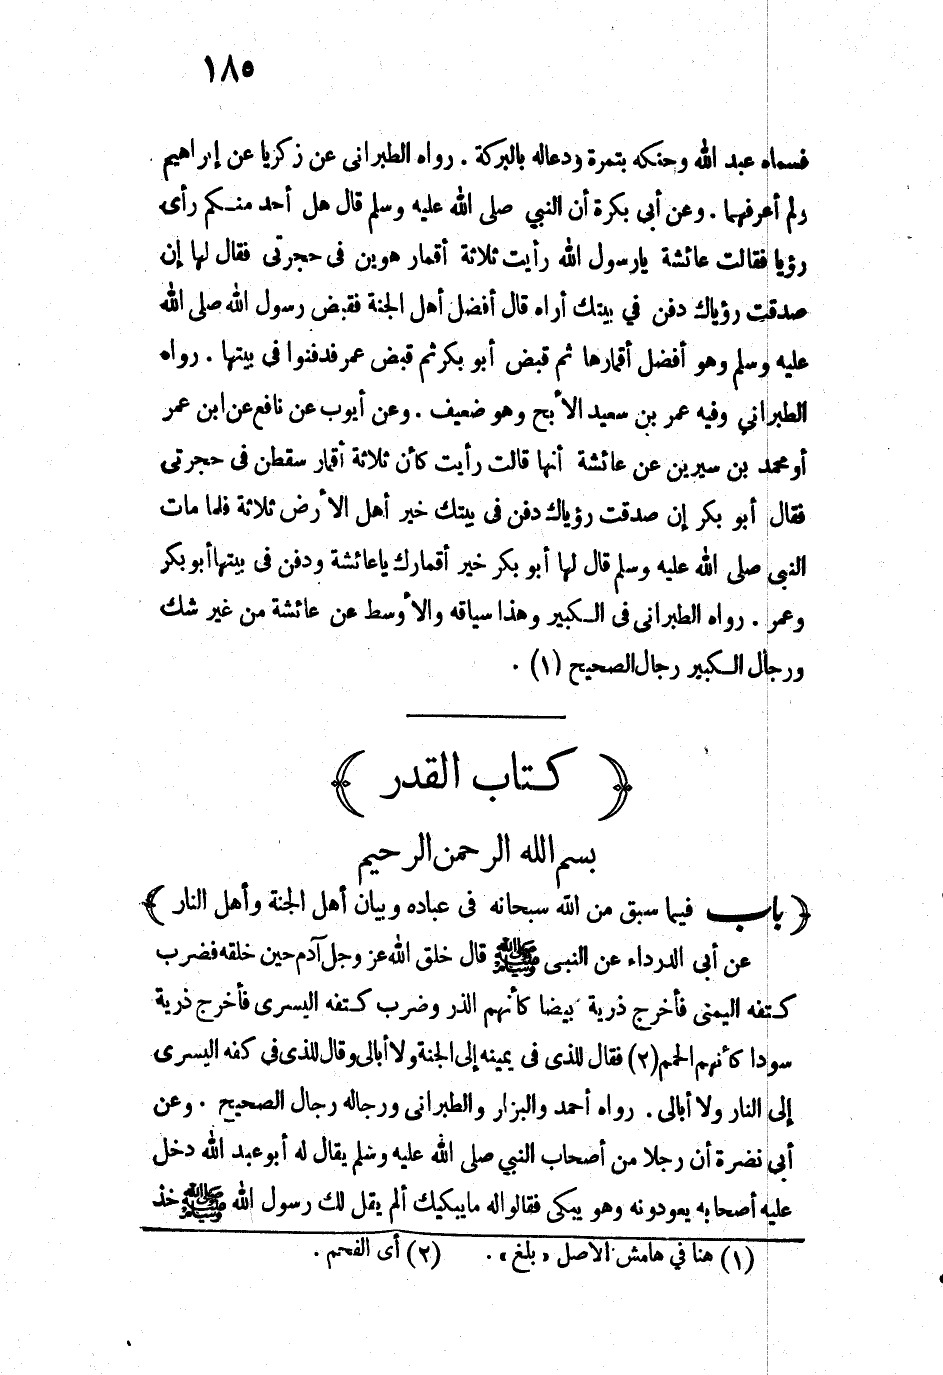 ١٨٥
فسماه عبد الله وحنكه بتمرة ودعاله بالبركة . رواه الطبرانى عن زكريا عن إبراهيم
ولم أعرفهما . وعن أبى بكرة أن النبي صلى الله عليه وسلم قال هل أحد منكم رأى
رؤيا فقالت عائشة يارسول الله رأيت ثلاثة أقمار هوين فى حجرتى فقال لها إن
صدقت رؤياك دفن في بيتك أراه قال أفضل أهل الجنة فقبض رسول الله صلى الله
عليه وسلم وهو أفضل أقمارها ثم قبض أبو بكر ثم قبض عمر فدفنوا فى بيتها . رواه
الطبراني وفيه عمر بن سعيد الأبح وهو ضعيف . وعن أيوب عن نافع عن ابن عمر
أو محمد بن سيرين عن عائشة أنها قالت رأيت كأن ثلاثة أقمار سقطن فى حجرتى
فقال أبو بكر إن صدقت رؤياك دفن فى بيتك خير أهل الأرض ثلاثة فلما مات
النبى صلى الله عليه وسلم قال لها أبو بكر خير أقمارك ياعائشة ودفن فى بيتها أبو بكر
وعمر . رواه الطبرانى فى الكبير وهذا سياقه والأوسط عن عائشة من غير شك
ورجال الكبير رجال الصحيح (١) .
﴿ كتاب القدر ﴾
بسم الله الرحمن الرحيم
﴿ باب فيما سبق من الله سبحانه فى عباده وبيان أهل الجنة وأهل النار ﴾
عن أبى الدرداء عن النبى ﷺ قال خلق الله عز وجل آدم حين خلقه فضرب
كتفه اليمنى فأخرج ذرية بيضا كأنهم الذر وضرب كتفه اليسرى فأخرج ذرية
سودا كأنهم الحمم (٢) فقال للذى فى يمينه إلى الجنة ولا أبالى وقال للذى فى كفه اليسرى
إلى النار ولا أبالى . رواه أحمد والبزار والطبرانى ورجاله رجال الصحيح . وعن
أبى نضرة أن رجلا من أصحاب النبي صلى الله عليه وسلم يقال له أبو عبد الله دخل
عليه أصحابه يعودونه وهو يبكى فقالواله مايبكيك ألم يقل لك رسول الله ﷺ خذ
(١) هنا في هامش الأصل « بلغ » . (٢) أى الفحم .